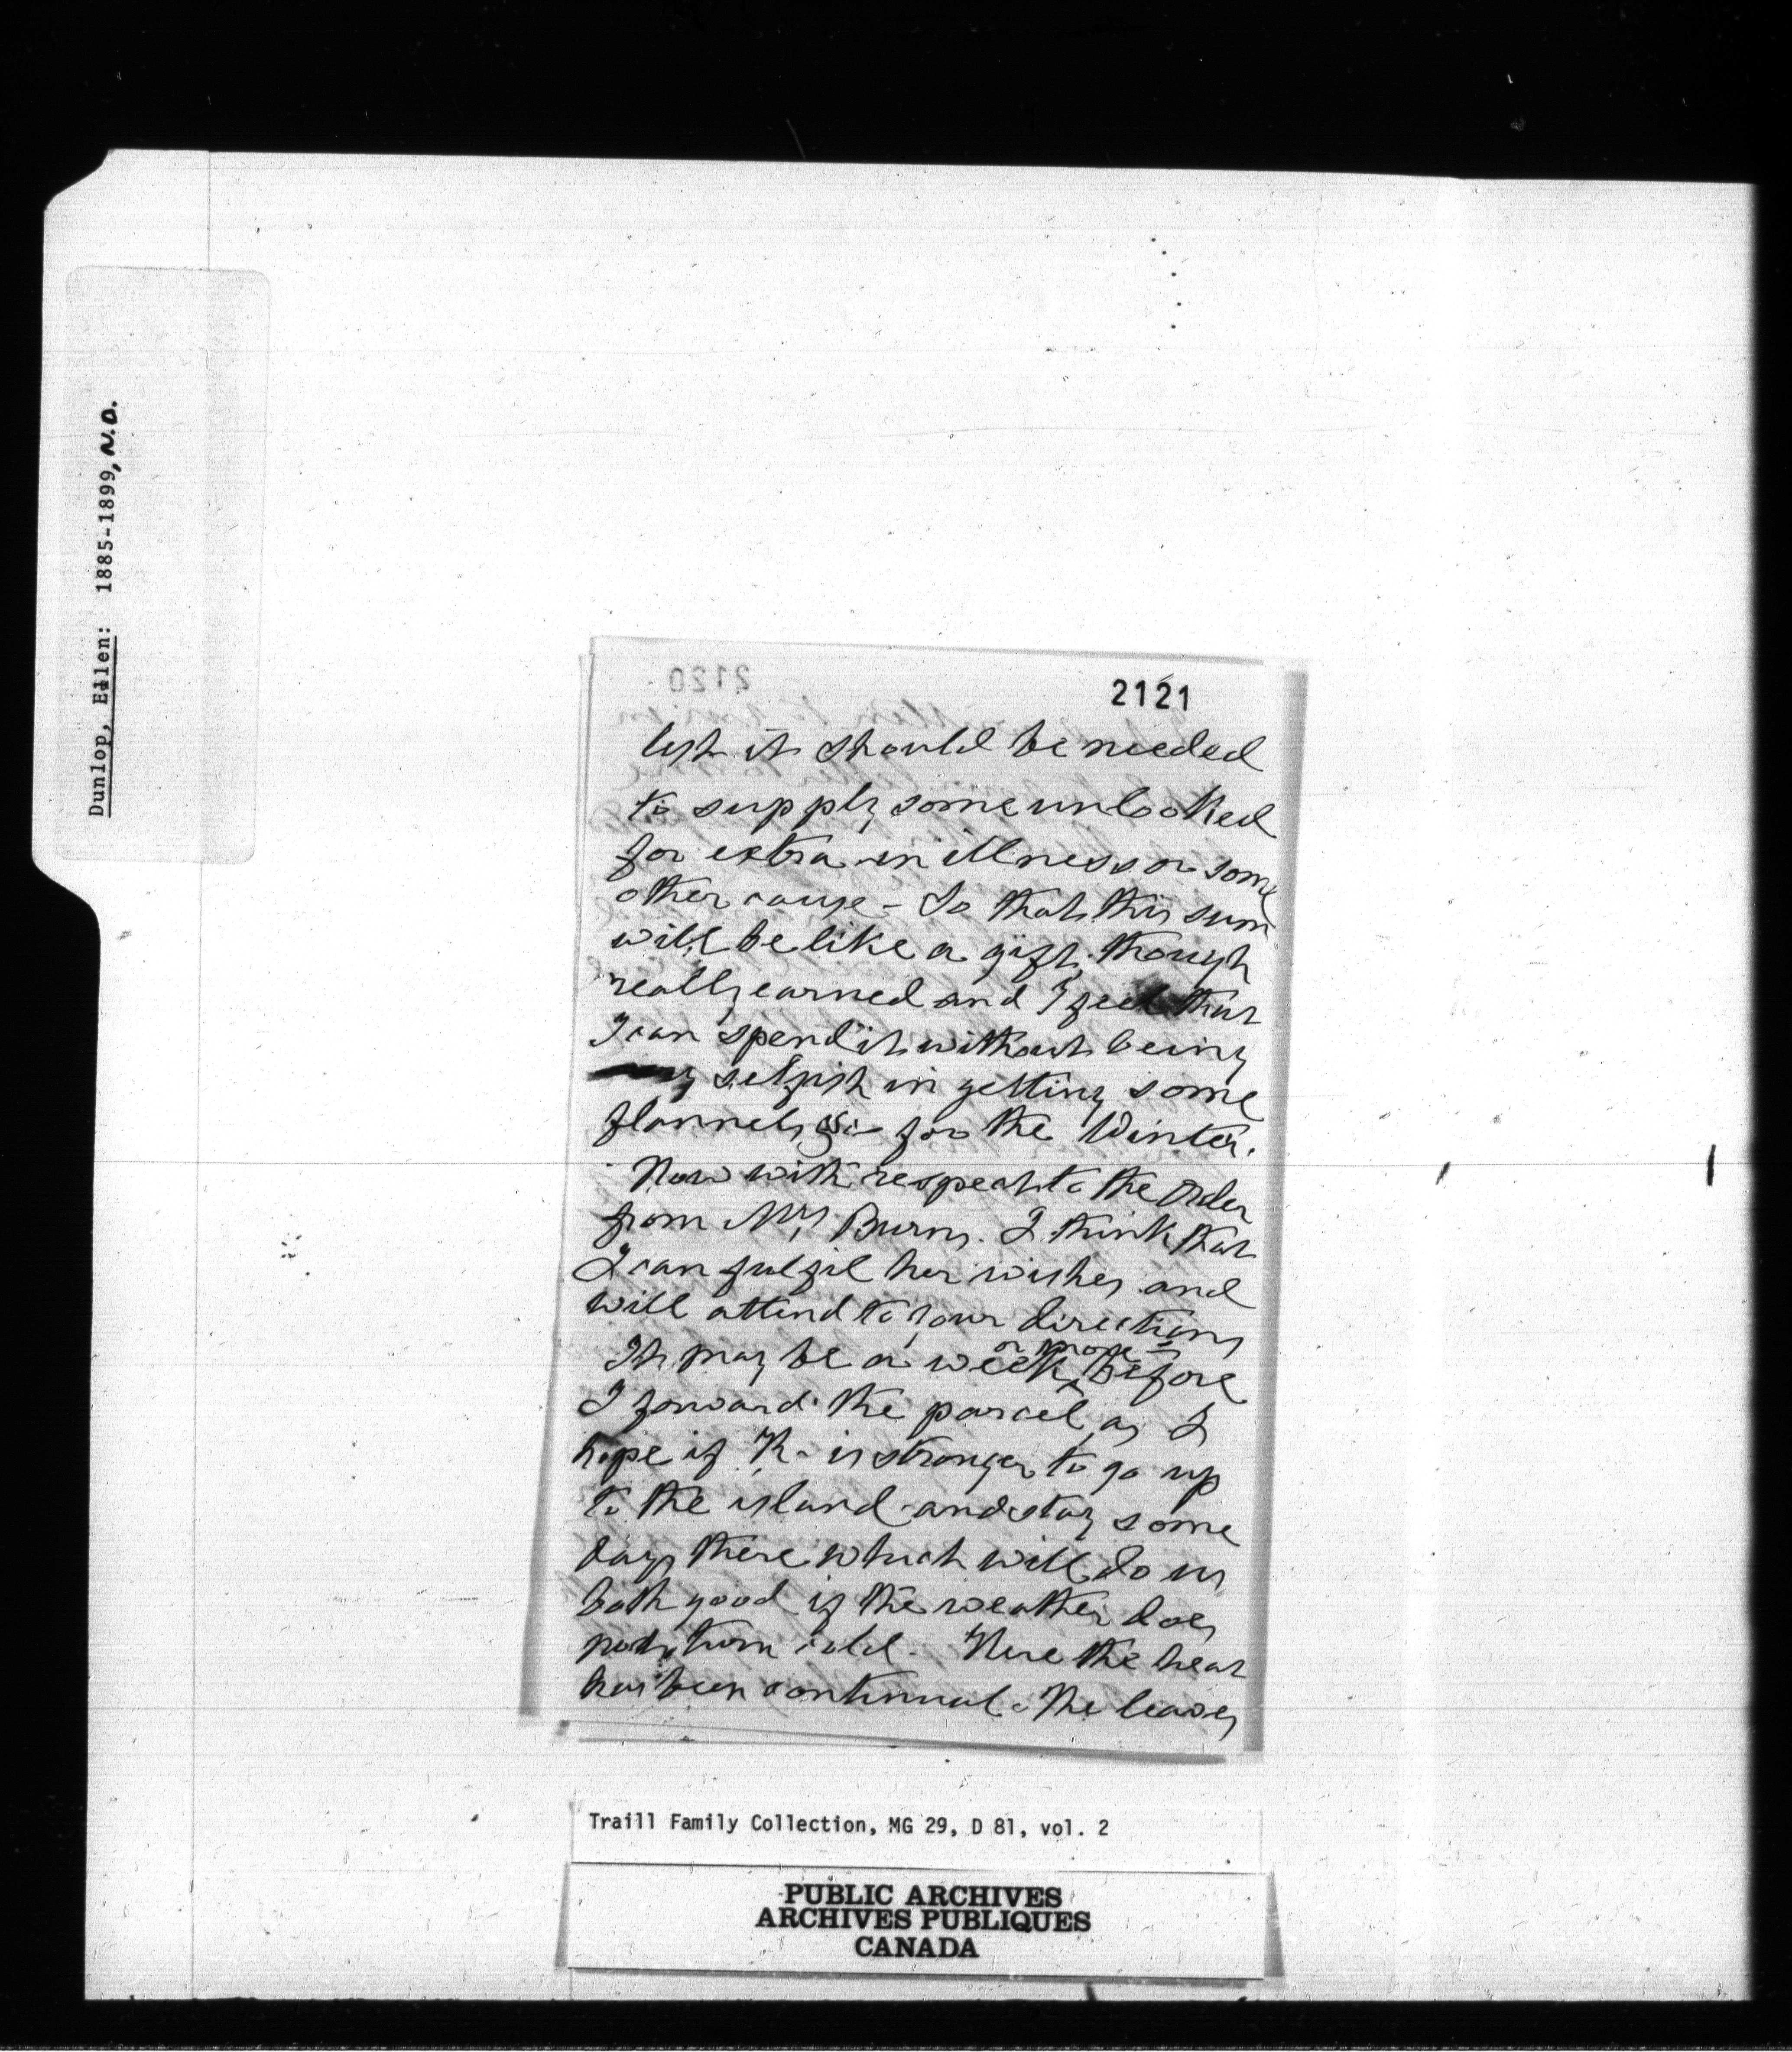 Dunlop, Ellen: 1885-1899, N.D.
2120
2121
lest it should be needed
to supply some unlooked
for extra in illness or some
other cause - So that this sum
will be like a gift though
really earned and I feel that
I can spend it without being
selfish in getting some
flannels &c for the Winter.
Now with respect to the Order
from Mrs Burns. I think that
I can fulfil her wishes and
will attend to your directions
or more
It may be a week before
I forward the parcel as I
hope if K- is stronger to go up
to the island and stay some
days there which will do us
both good if the weather does
not turn cold. Here the heat
has been continual. The leaves
Traill Family Collection, MG 29, D 81, vol. 2
PUBLIC ARCHIVES
ARCHIVES PUBLIQUES
CANADA